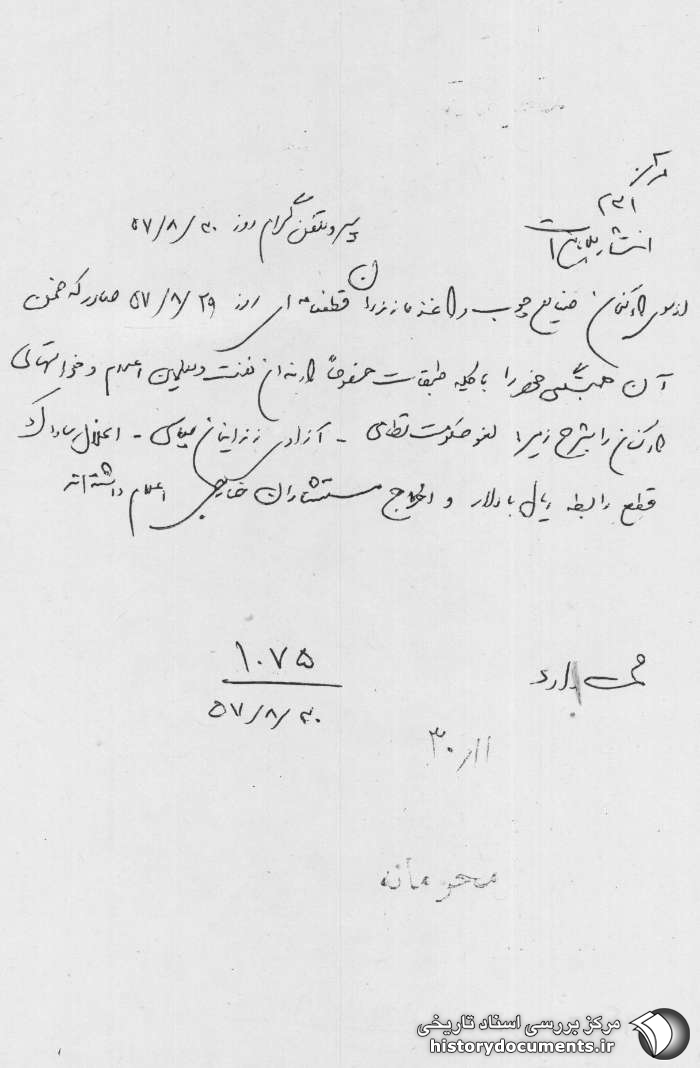 مرکز
۲۳۱
پیرو تلفن گرام روز ۵۷/۸/۳۰
از سوی کارکنان صنایع چوب و کاغذ مازندران قطعنامه ای روز ۵۷/۸/۲۹ صادر که ضمن
آن همبستگی خود را با کلیه طبقات خصوصاً کارمندان نفت و معلمین اعلام و خواستهای
کارکنان را بشرح زیر لغو حکومت نظامی - آزادی زندانیان سیاسی - انحلال ساواک
قطع رابطه ریال با دلار و اخراج مستشاران خارجی اعلام داشته اند
۱۰۷۵
۵۷/۸/۳۰
محرمانه
مرکز بررسی اسناد تاریخی
historydocuments.ir